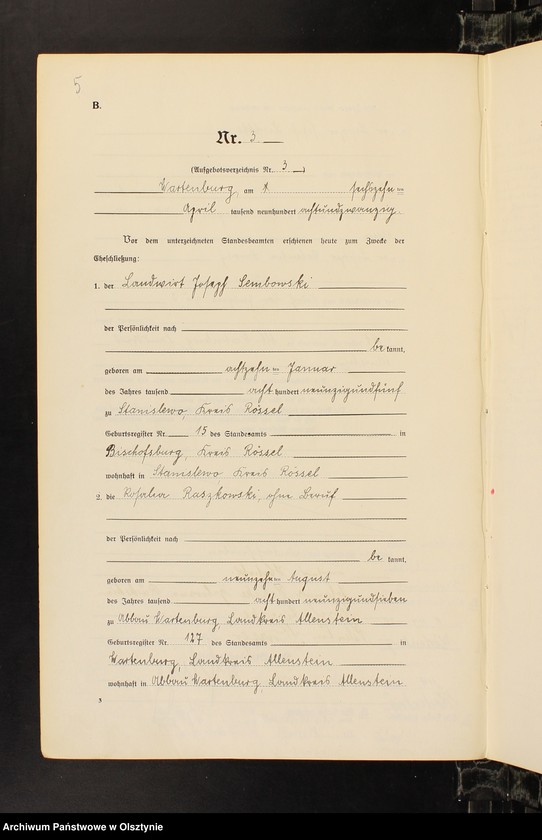 5
B.
Nr. 3
(Aufgebotsverzeichnis Nr. 3)
Wartenburg, am sechszehnten
April tausend neunhundert achtundzwanzig.
Vor dem unterzeichneten Standesbeamten erschienen heute zum Zwecke der
Eheschließung:
1. der Landwirt Joseph Sembowski
der Persönlichkeit nach
be kannt,
geboren am achtzehnten Januar
des Jahres tausend acht hundert neunzigundfünf
zu Stanislewo, Kreis Rössel
Geburtsregister Nr. 15 des Standesamts in
Bischofsburg, Kreis Rössel
wohnhaft in Stanislewo Kreis Rössel
2. die Rosalia Raszkowski, ohne Beruf
der Persönlichkeit nach
be kannt,
geboren am neunzehnten August
des Jahres tausend acht hundert neunzigundsieben
zu Abbau Wartenburg, Landkreis Allenstein
Geburtsregister Nr. 127 des Standesamts in
Wartenburg, Landkreis Allenstein
wohnhaft in Abbau Wartenburg, Landkreis Allenstein
3
Archiwum Państwowe w Olsztynie